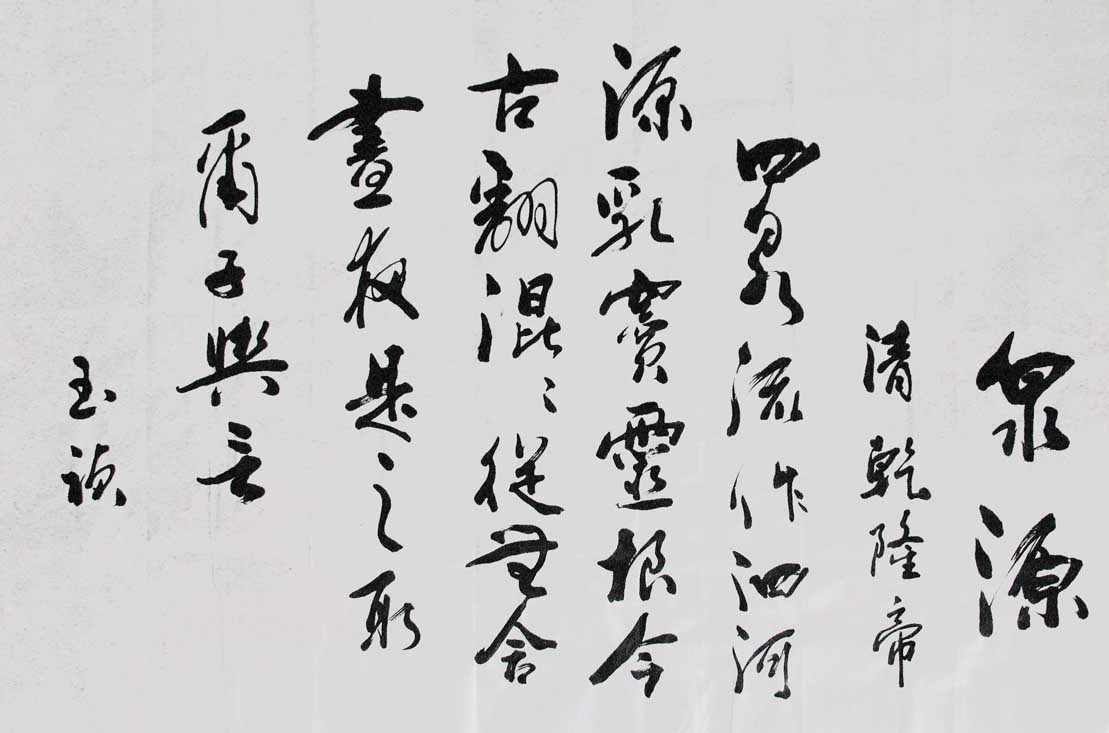 泉源
清乾隆帝
四泉流作泗河
源乳竇靈根今
古翻混〻從無舍
晝夜是之取
爾子輿言
玉禎